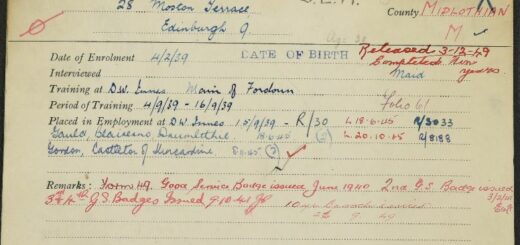 28 Moston Terrace
Edinburgh 9.
County MIDLOTHIAN
M
Age 38
Date of Enrolment 4/2/39 DATE OF BIRTH Released 3-12-49
Interviewed Completed
Maid years.
Training at D.W. Innes Mains of Fordoun
Period of Training 4/9/39 - 16/9/39 Folio 61
Placed in Employment at D.W. Innes 15/9/39 - R/30 L 18.6.45 R/3033
Gauld, Drumlithie L 20.10.45 R/8188
Gordon, Castleton of Kincardine
Remarks: Form 49. Good Service Badge issued June 1940 2nd G.S Badge issued
3rd & 4th G.S Badges Issued 9.10.41 3/2/41